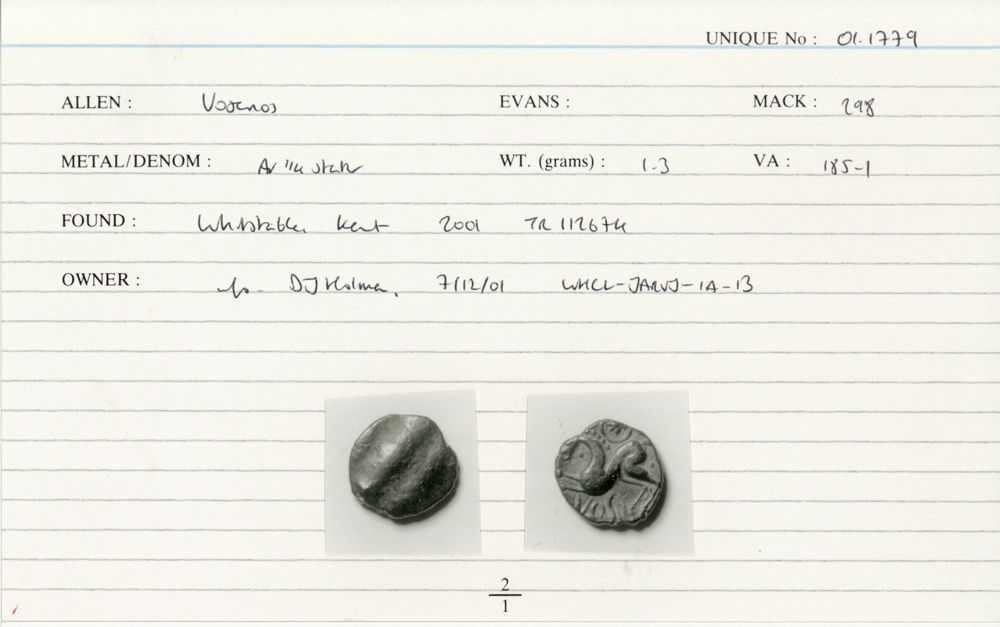 UNIQUE No : 01.1779
ALLEN : Vosenos EVANS : MACK : 298
METAL/DENOM : AV 1/4 stater WT. (grams) : 1.3 VA : 185-1
FOUND : Whitstable, Kent 2001 TR 112674
OWNER : D J Holman, 7/12/01 WHCL-JARVJ-IA-13
2
1